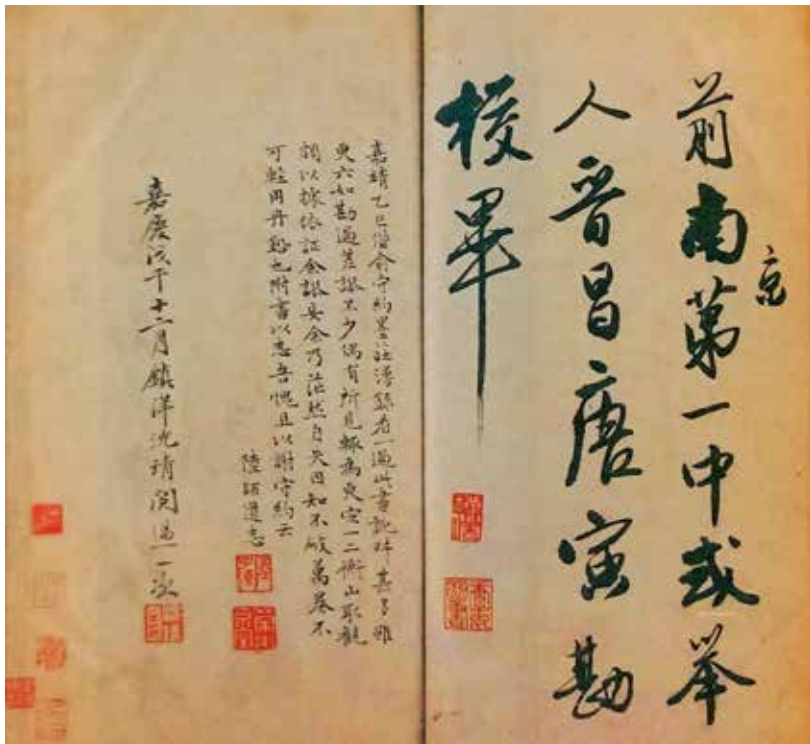 前南京第一中式舉
人晉昌唐寅勘
校畢
嘉靖乙巳借俞守約墨莊漫録看一過此書訛舛甚多雖
更六如勘過差誤不少偶有所見輒為更定一二衡山取觀
謂以據依証余誤妄余乃茫然自失因知不破萬卷不
可輕用丹鉛也附書以志吾愧且以謝守約云
陸師道志
嘉慶戊午十二月鎮洋沈靖閲過一次